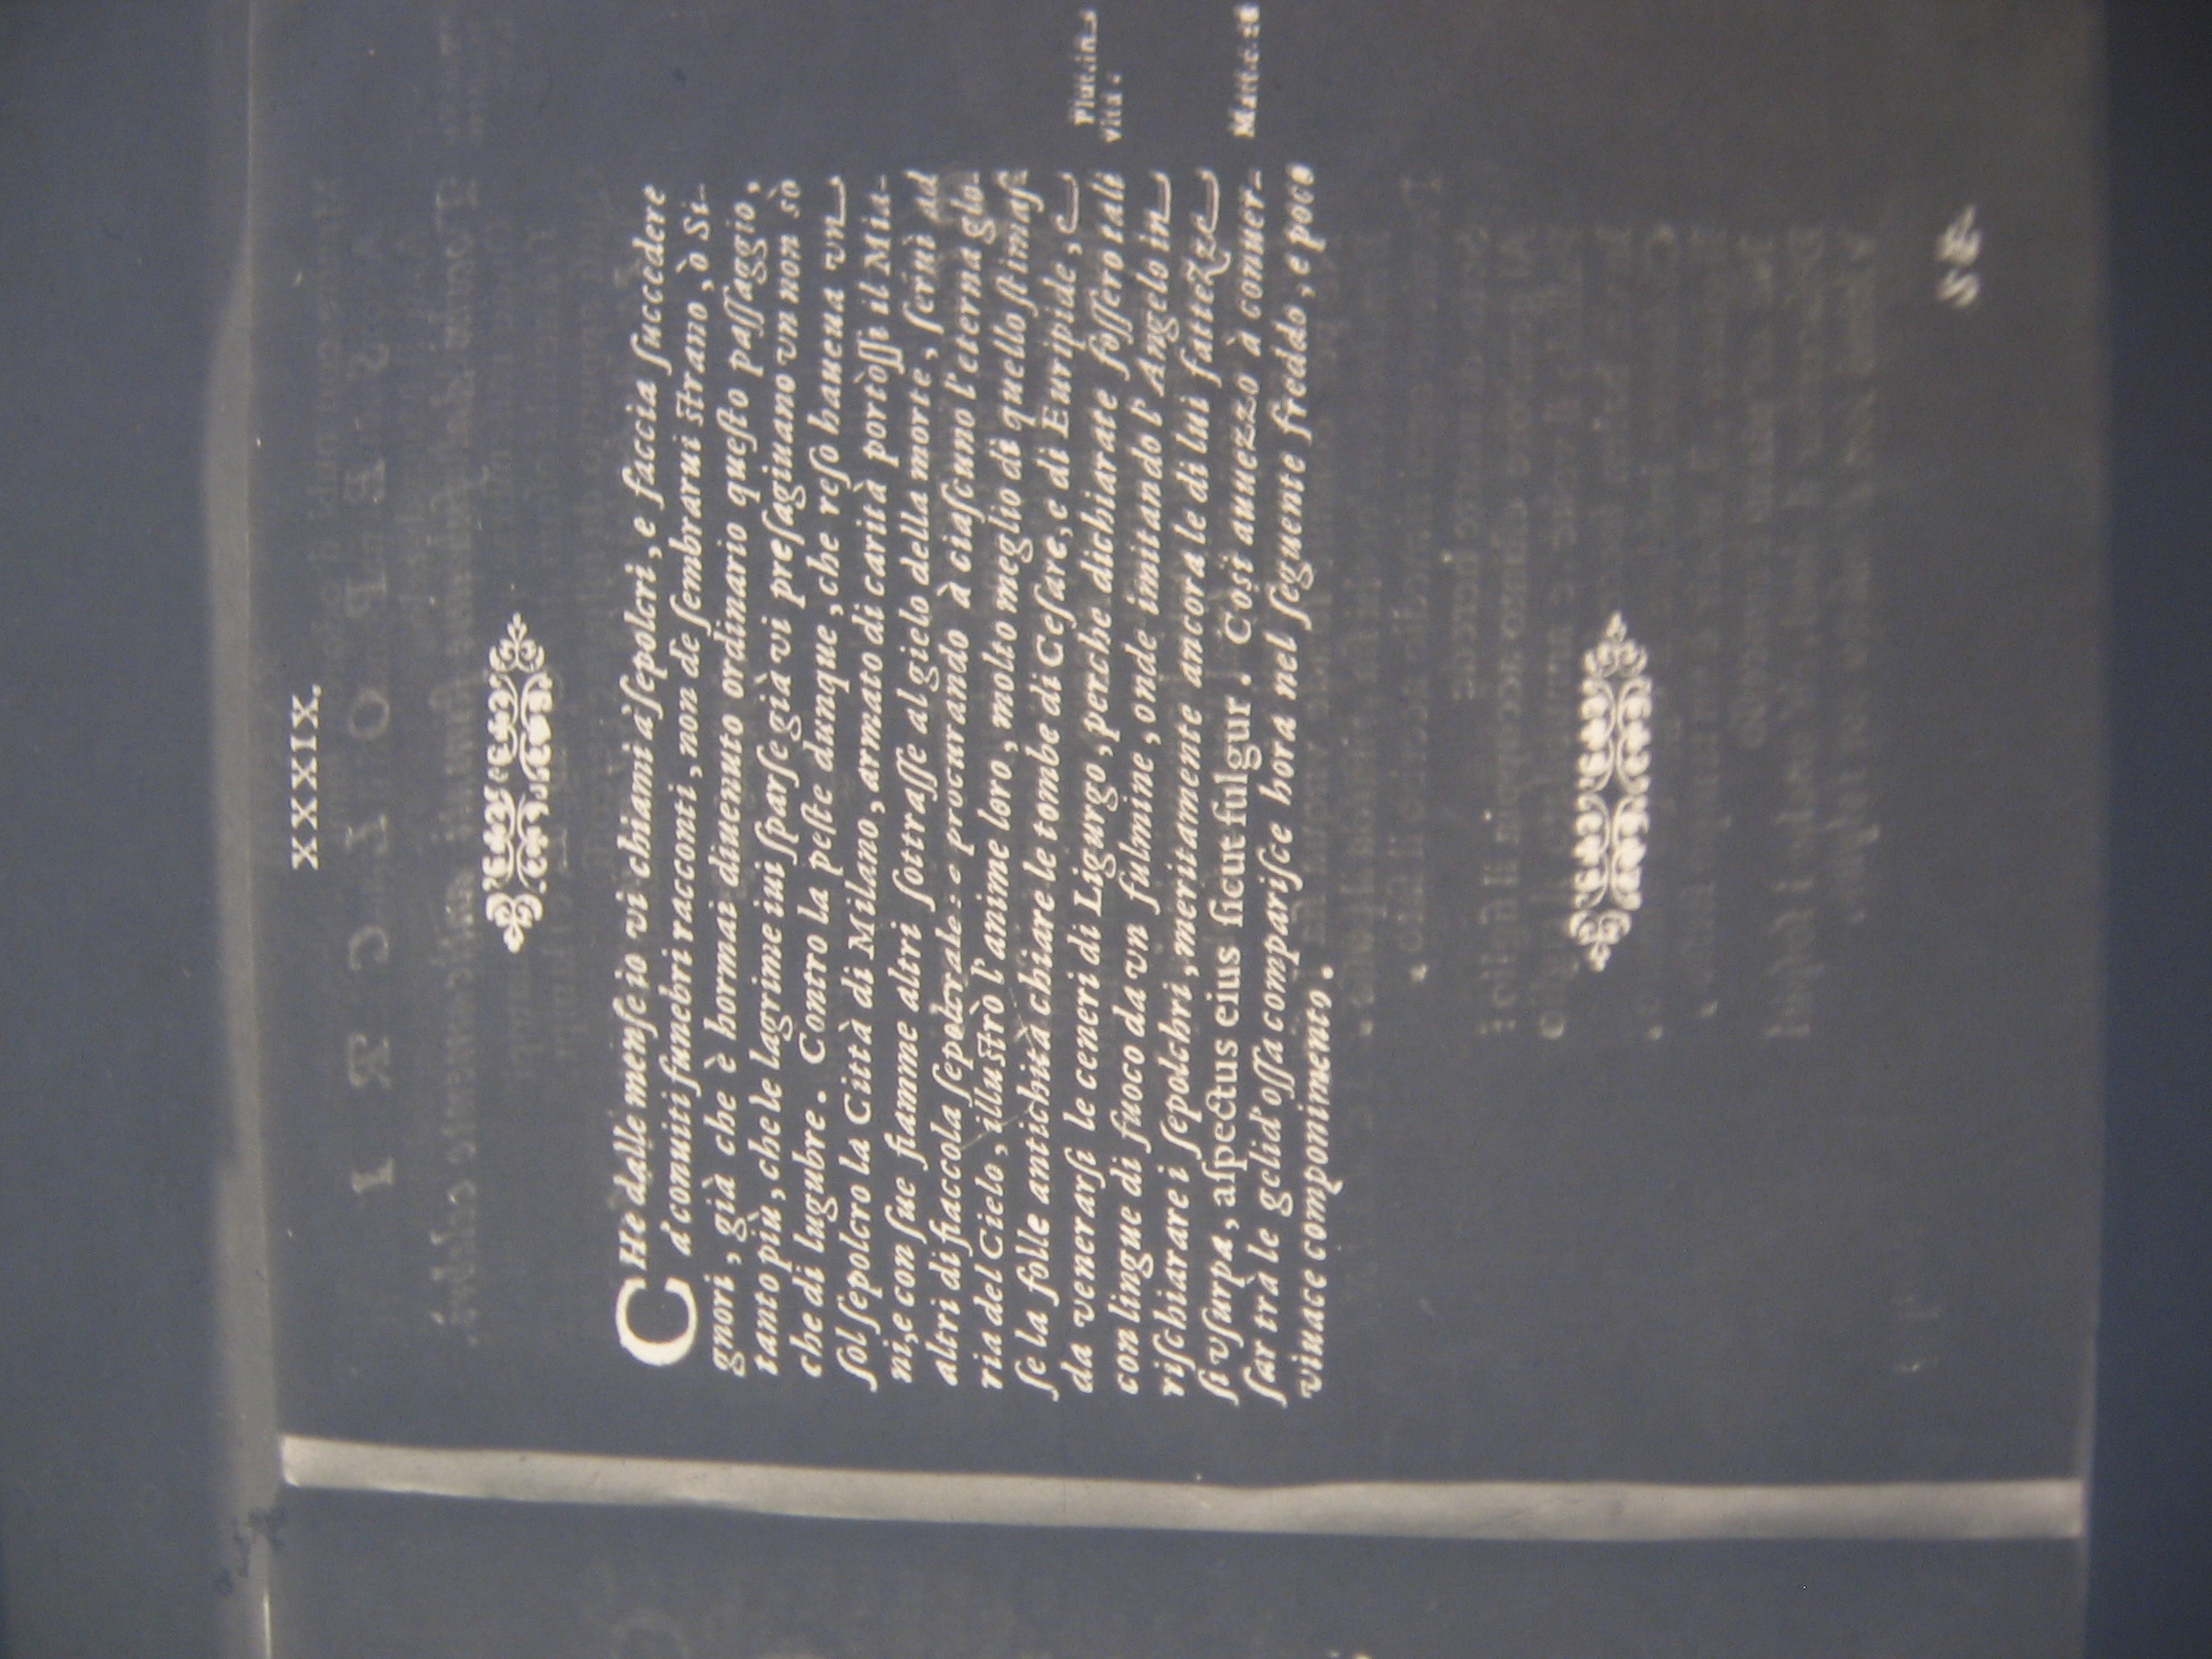 XXXIX.
CHe dalle mense io vi chiami a' sepolcri, e faccia succedere
a' conuiti funebri racconti, non de sembrarui strano, ò Si-
gnori, già che è hormai diuenuto ordinario questo passaggio,
tanto più, che le lagrime iui sparse già vi presagiuano vn non sò
che di lugubre. Contro la peste dunque, che reso haueua vn
sol sepolcro la Città di Milano, armato di carità portòssi il Mia-
ni, e con sue fiamme altri sottrasse al gielo della morte, seruì ad
altri di fiaccola sepolcrale: e procurando à ciascuno l'eterna glo-
ria del Cielo, illustrò l'anime loro, molto meglio di quello stimas-
se la folle antichità chiare le tombe di Cesare, e di Euripide, e
da venerarsi le ceneri di Ligurgo, perche dichiarate fossero tali
con lingue di fuoco da vn fulmine, onde imitando l'Angelo in
rischiarare i sepolchri, meritamente ancora le di lui fattezze
si vsurpa, aspectus eius sicut fulgur. Così auuezzo à conuer-
sar trà le gelid' ossa comparisce hora nel seguente freddo, e poco
viuace componimento.
Plut. in
vita.
Matt. c. 28